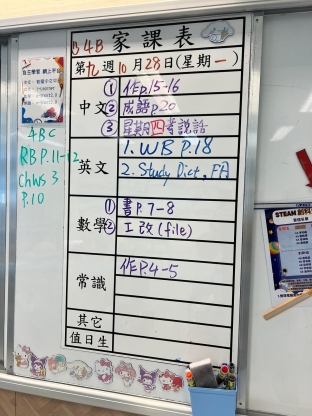 4B 家課表
第九週 10月28日(星期一)
自主學習 網上平台
中文
① 作p.15-16
② 成語p.20
③ 星期四考說話
英文
1. WB P.18
2. Study Dict.
數學
① 書P.7-8
② 工改(file)
常識
作P.4-5
其它
值日生
4BC
RB P.11-12
Ch WS 3
P.10
STEAM